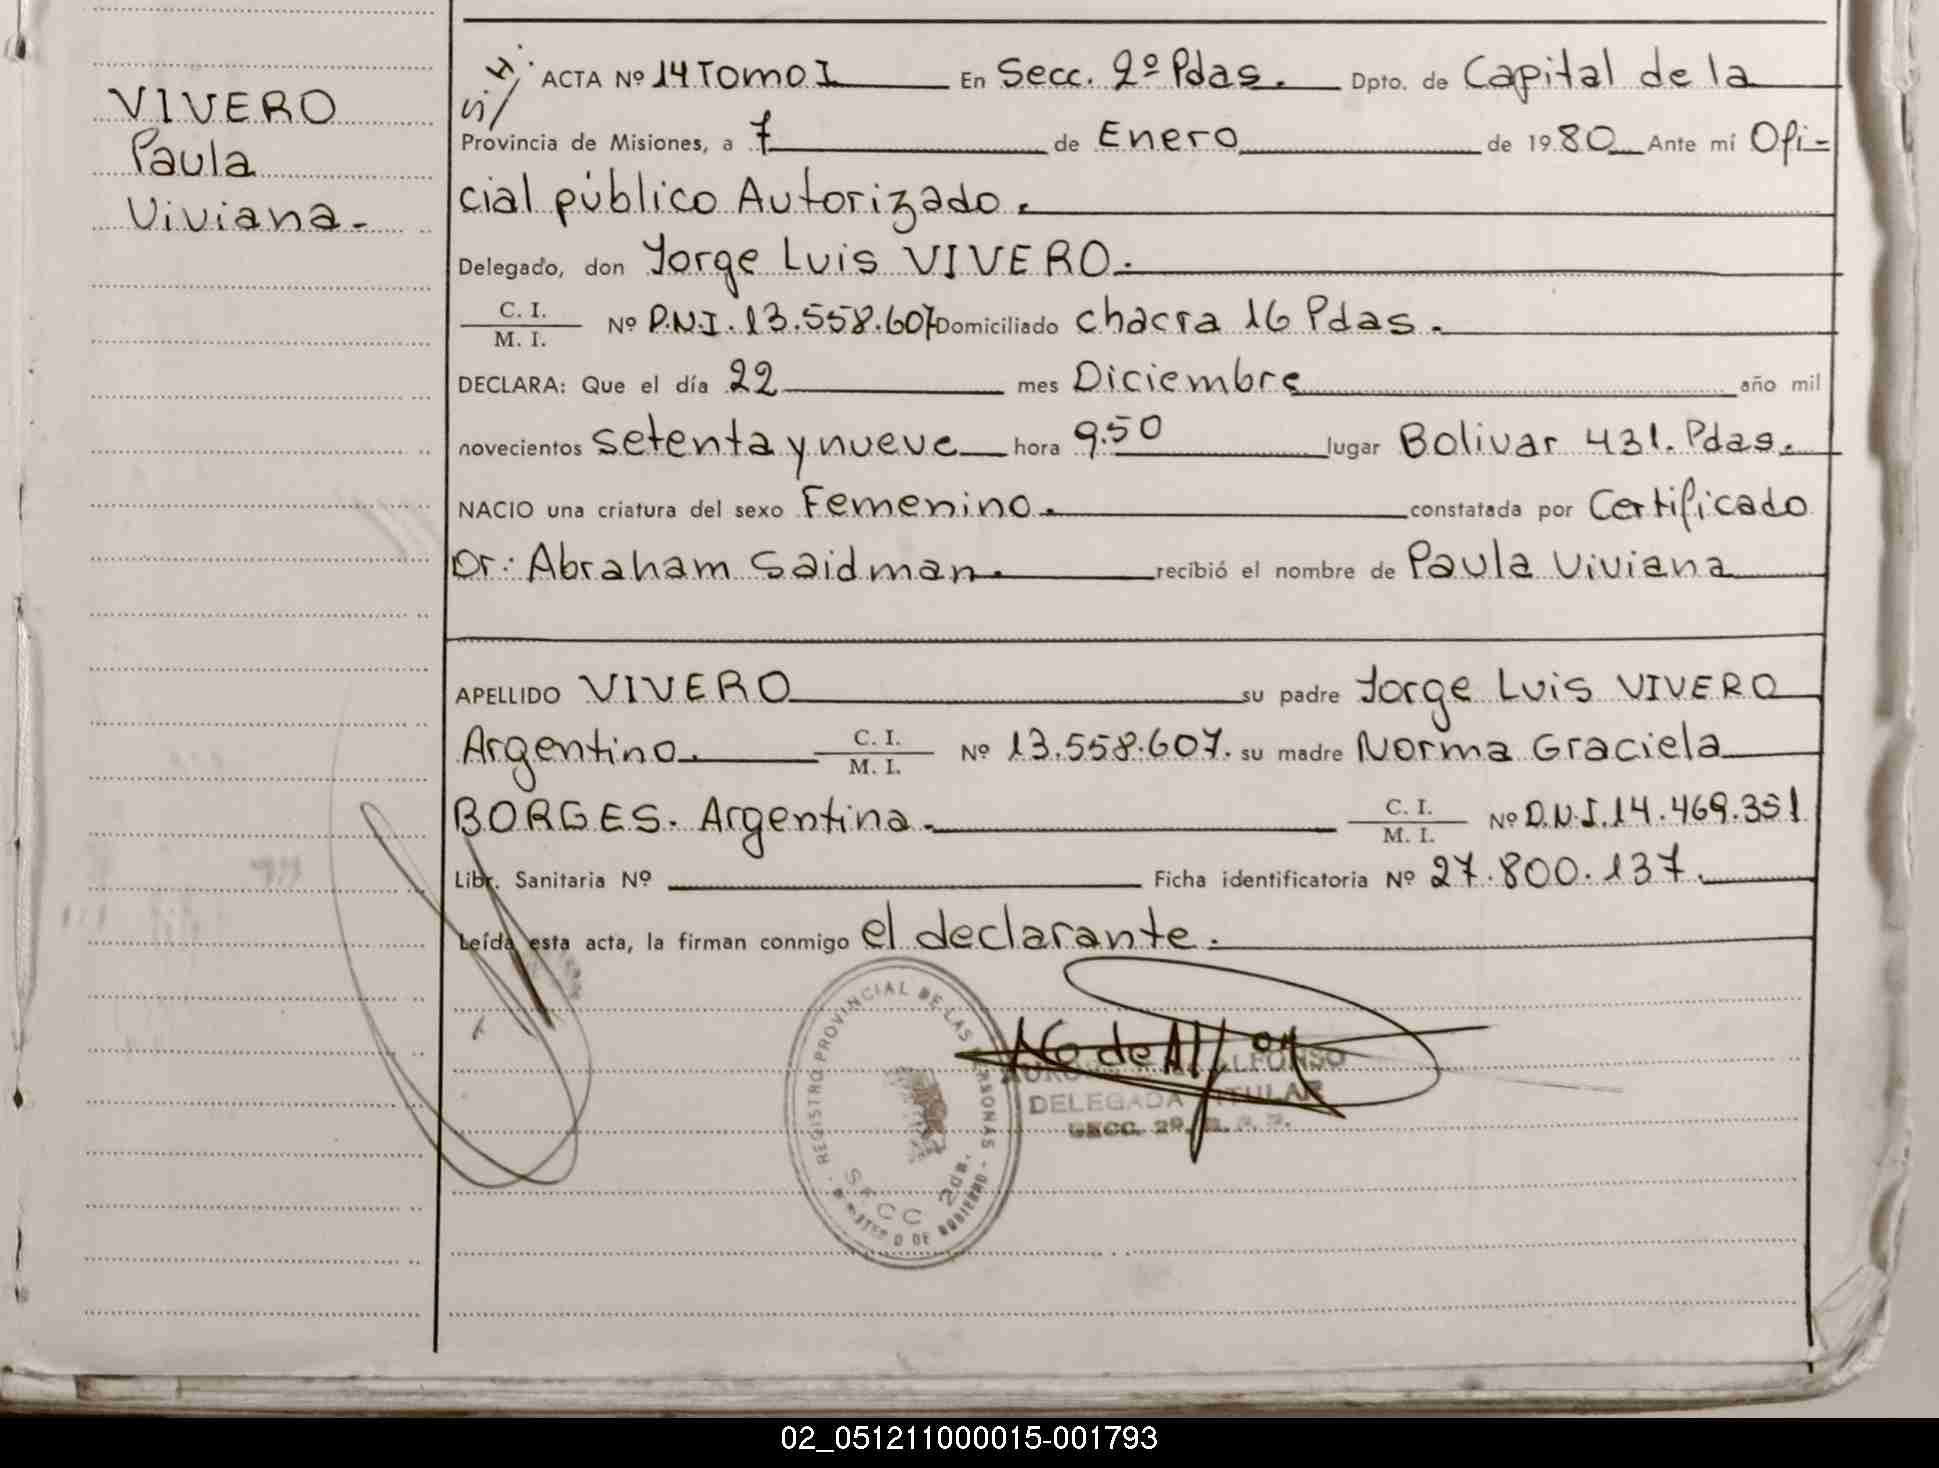 VIVERO
Paula
Viviana.-
S/H. ACTA Nº 14 Tomo I En Secc. 2º Pdas. Dpto. de Capital de la
Provincia de Misiones, a 7 de Enero de 1980 Ante mí Ofi-
cial público Autorizado.
Delegado, don Jorge Luis VIVERO.
C. I.
M. I. Nº D.N.I. 13.558.607 Domiciliado chacra 16 Pdas.
DECLARA: Que el día 22 mes Diciembre año mil
novecientos setenta y nueve hora 9.50 lugar Bolivar 431. Pdas.
NACIO una criatura del sexo Femenino. constatada por Certificado
Dr: Abraham Saidman. recibió el nombre de Paula Viviana
APELLIDO VIVERO su padre Jorge Luis VIVERO
Argentino. C. I. M. I. Nº 13.558.607. su madre Norma Graciela
BORGES. Argentina. C. I. M. I. Nº D.N.I. 14.469.351
Libr. Sanitaria Nº Ficha identificatoria Nº 27.800.137.
Leída esta acta, la firman conmigo el declarante.
REGISTRO PROVINCIAL DE LAS PERSONAS
SECC 2da.
ALFONSO
DELEGADA TITULAR
SECC. 2ª.
02_051211000015-001793